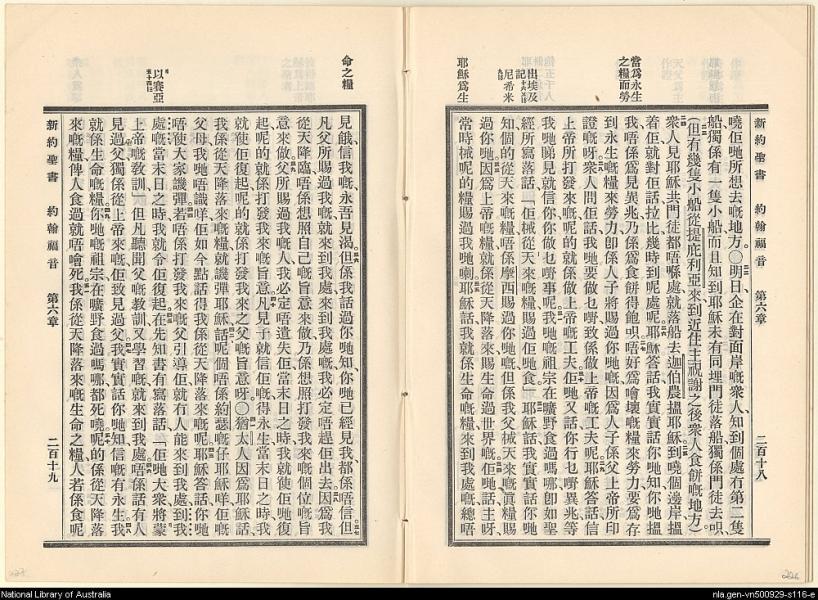 新約聖書 約翰福音 第六章 二百十八
嘵佢哋所想去嘅地方〇明日企在對面岸嘅衆人知到個處冇第二隻
船獨係有一隻小船而且知到耶穌未有同埋門徒落船獨係門徒去呮
(但有幾隻小船從提庇利亞來到近住主祝謝之後衆人食餠嘅地方)
衆人見耶穌共門徒都唔喺處就落船去迦伯農搵耶穌到嘵個邊岸搵
着佢就對佢話拉比幾時到呢處呢耶穌答話我實實話你哋知你哋搵
我唔係爲見異兆乃係爲食餠得飽呮唔好爲噲壞嘅糧來勞力要爲存
到永生嘅糧來勞力卽係人子將賜過你哋嘅因爲人子係父上帝所印
證嘅呀衆人問佢話我哋要做乜嘢致係做上帝嘅工夫呢耶穌答話信
上帝所打發來嘅呢的就係做上帝嘅工夫佢哋又話你行乜嘢異兆等
我哋睇見就信你你做乜嘢事呢我哋嘅祖宗在曠野食過嗎哪卽如聖
經所寫落話佢械從天來嘅糧賜過佢哋食耶穌話我實實話你哋
知個的從天來嘅糧唔係摩西賜過你哋嘅但係我父械天來嘅眞糧賜
過你哋因爲上帝嘅糧就係從天降落來賜生命過世界嘅佢哋話主呀
常時械呢的糧賜過我哋喇耶穌話我就係生命嘅糧到我處嘅總唔
當爲永生之糧而勞
出埃及記
尼希米
耶穌爲生
命之糧
以賽亞
見餓信我嘅永吾見渴但係我話過你哋知你哋已經見我都係唔信但
凡父所賜過我嘅就來到我處來到我處嘅我必定唔趕佢出去因爲我
從天降臨唔係想照自己嘅旨意來做乃係想照打發我來嘅個位嘅旨
意來做父所賜過我嘅人我必定唔遺失佢當末日之時我就使佢哋復
起呢的就係打發我來嘅旨意凡見子就信佢嘅得永生當末日之時我
就使佢復起呢的就係打發我來之父嘅旨意呀〇猶太人因爲耶穌話
我係從天降落來嘅糧就譏彈耶穌話呢個唔係約瑟嘅仔耶穌咩佢嘅
父母我哋唔識咩佢如今點話得我係從天降落來嘅呢耶穌答話你哋
唔使大家譏彈若唔係打發我來嘅父引導佢就冇人能來到我處到我
處嘅當末日之時我就令佢復起在先知書有寫落話佢哋大衆將蒙
上帝嘅教訓但凡聽聞父嘅教訓又學習嘅就來到我處唔係話有人
見過父獨係從上帝來嘅佢致見過父我實實話你哋知信嘅有永生我
就係生命嘅糧你哋嘅祖宗在曠野食過嗎哪都死嘵呢的係從天降落
來嘅糧俾人食過就唔噲死我係從天降落來嘅生命之糧人若係食呢
新約聖書 約翰福音 第六章 二百十九
National Library of Australia
nla.gen-vn500929-s116-e